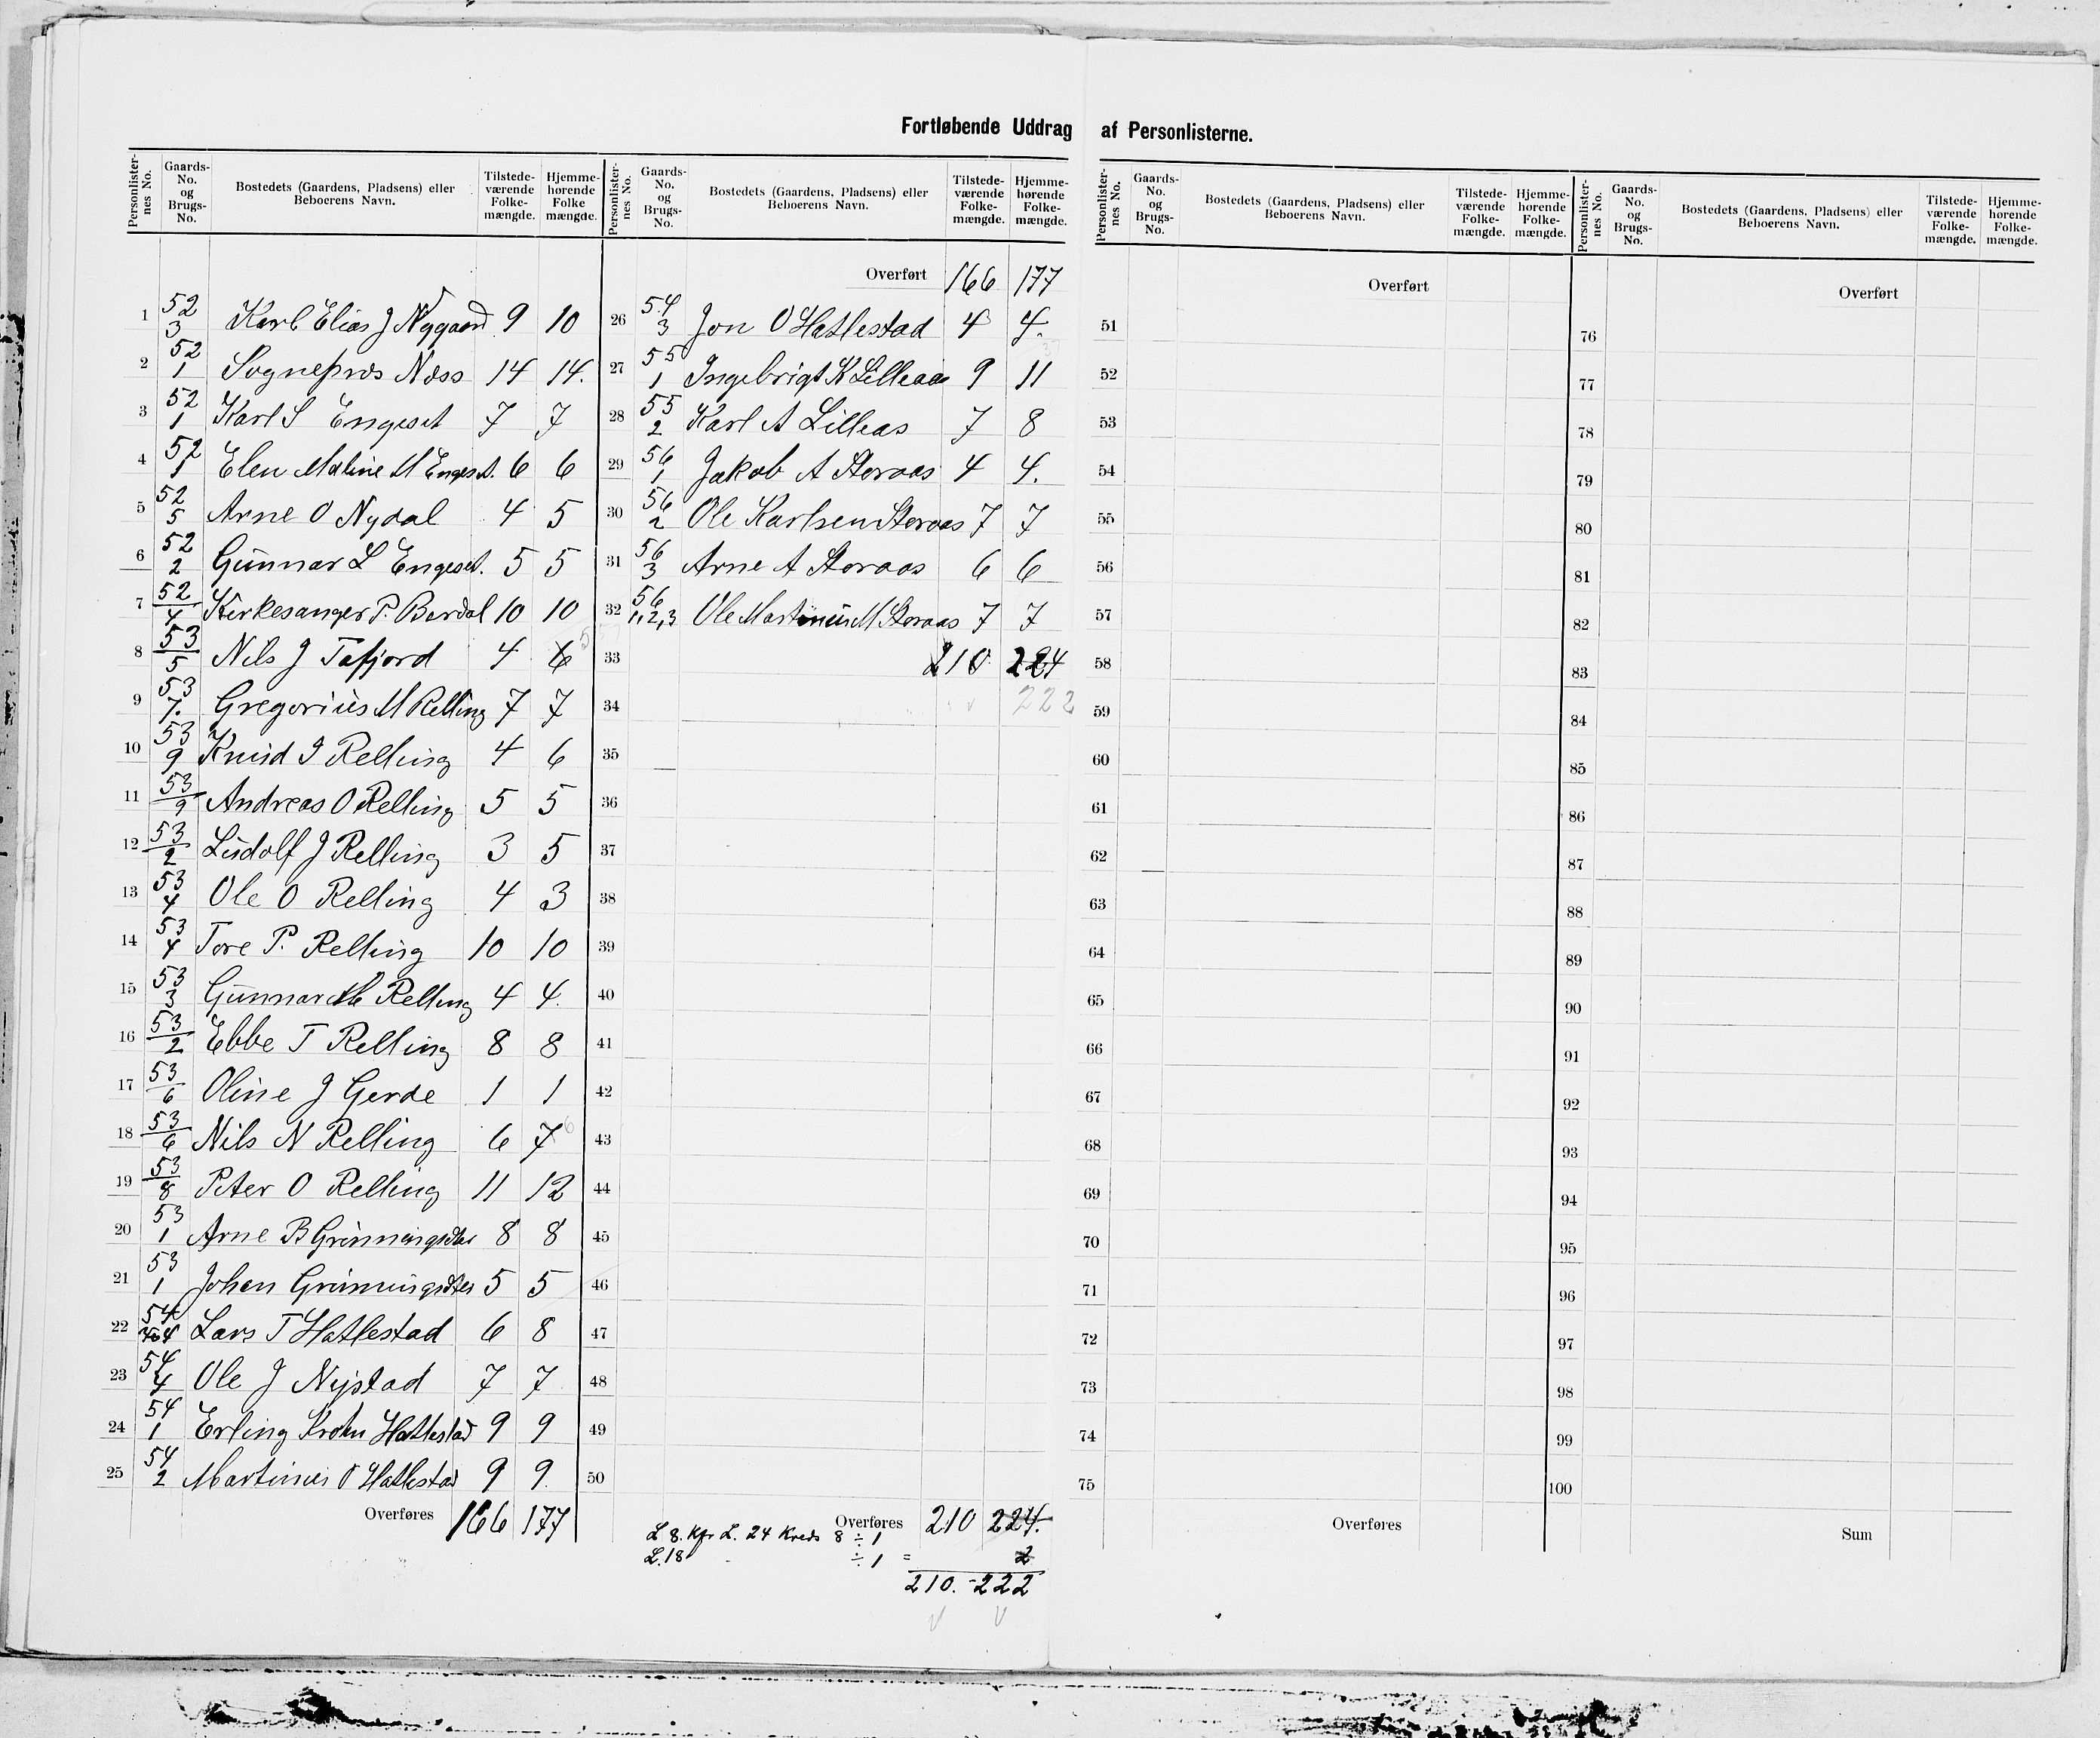 Fortløbende Uddrag af Personlisterne.
Personlister-nes No. Gaards-No. og Brugs-No. Bostedets (Gaardens, Pladsens) eller Beboerens Navn. Tilstede-værende Folke-mængde. Hjemme-hørende Folke mængde.
1 52/3 Karl Elias J Nygaard 9 10
2 52/1 Sognepræs Næss 14 14.
3 52/1 Karl S Engeset 7 7
4 52/1 Elen Maline M Engeset. 6 6
5 52/5 Arne O Nydal 4 5
6 52/2 Gunnar L Engeset. 5 5
7 52/4 Kirkesanger P. Berdal 10 10
8 53/5 Nils J Tafjord 4 6 5
9 53/7. Gregorius M Relling 7 7
10 53/9 Knud I Relling 4 6
11 53/9 Andreas O Relling 5 5
12 53/2 Ludolf J Relling 3 5
13 53/4 Ole O Relling 4 3
14 53/4 Tore P. Relling 10 10
15 53/3 Gunnar M Relling 4 4.
16 53/2 Ebbe T Relling 8 8
17 53/6 Oline J Gerde 1 1
18 53/6 Nils N Relling 6 7 6
19 53/8 Peter O Relling 11 12
20 53/1 Arne B 8 8
21 53/1 Johan 5 5
22 54/4 Lars T Hatlestad 6 8
23 54/4 Ole J Nystad 7 7
24 54/1 Erling Krohn Hatlestad 9 9
25 54/2 Martinus O Hatlestad 9 9.
Overføres 166 177
Personlister-nes No. Gaards-No. og Brugs-No. Bostedets (Gaardens, Pladsens) eller Beboerens Navn. Tilstede-værende Folke-mængde. Hjemme-hørende Folke-mængde.
Overført 166 177
26 54/3 Jon O Hatlestad 4 4.
27 55/1 Ingebrigt K Lilleaas 9 11
28 55/2 Karl A Lilleas 7 8
29 56/1 Jakob A Storaas 4 4.
30 56/2 Ole Karlsen Storaas 7 7
31 56/3 Arne A Storaas 6 6
32 56/1,2,3 Ole Martinus M Storaas 7 7
33 210 224
34 222
35
36
37
38
39
40
41
42
43
44
45
46
47
48
49
50
Overføres 210 224.
L 8. kfr L. 24 Kreds 8 ÷ 1
L. 18 - ÷ 1 = 2
210. - 222
Personlister-nes No. Gaards-No. og Brugs-No. Bostedets (Gaardens, Pladsens) eller Beboerens Navn. Tilstede-værende Folke-mængde. Hjemme-hørende Folke-mængde.
Overført
51
52
53
54
55
56
57
58
59
60
61
62
63
64
65
66
67
68
69
70
71
72
73
74
75
Overføres
Personlister-nes No. Gaards-No. og Brugs-No. Bostedets (Gaardens, Pladsens) eller Beboerens Navn. Tilstede-værende Folke-mængde. Hjemme-hørende Folke-mængde.
Overført
76
77
78
79
80
81
82
83
84
85
86
87
88
89
90
91
92
93
94
95
96
97
98
99
100
Sum